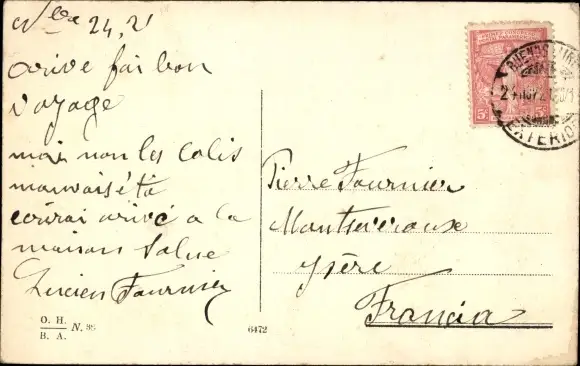 24, 21
arive fai bon
voyage
mai non les colis
mauvais été
ecrirai arivé a la
maison Salue
Lucien Fournier
Pierre Fournier
Montseveroux
Ysère
Francia
BUENOS AIRES
EXTERIOR
5c
O. H.
B. A.
N. 38
6472